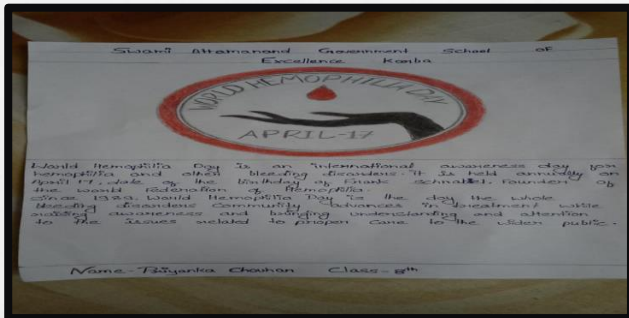 Swami Attamanand Government School of
Excellence Korba
WORLD HEMOPHILIA DAY
APRIL-17
World Hemophilia Day is an international awareness day for
hemophilia and other bleeding disorders. it is held annually on
April 17, date of the birthday of Frank Schnabel, founder of
the World Federation of Hemophilia.
Since 1989. World Hemophilia Day is the day the whole
bleeding disorders community advances in treatment while
raising awareness and bringing understanding and attention
to the issues related to proper care to the wider public.
Name - Priyanka Chouhan Class - 8th